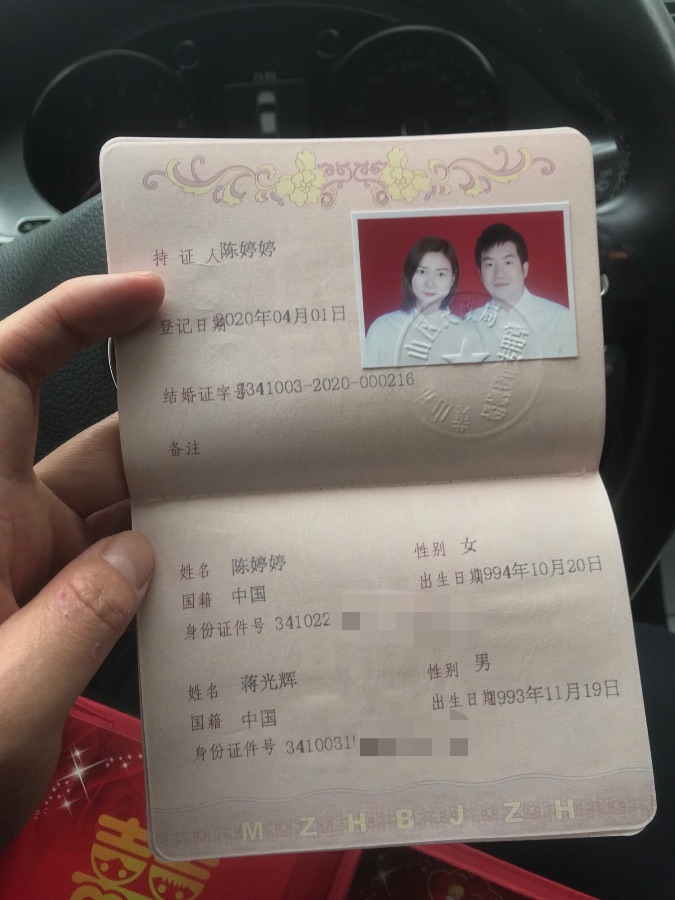 持 证 人 陈婷婷
登记日期 2020年04月01日
结婚证字号 J341003-2020-000216
备注
姓名 陈婷婷 性别 女
国籍 中国 出生日期 1994年10月20日
身份证件号 341022
姓名 蒋光辉 性别 男
国籍 中国 出生日期 1993年11月19日
身份证件号 3410031
M Z H B J Z H